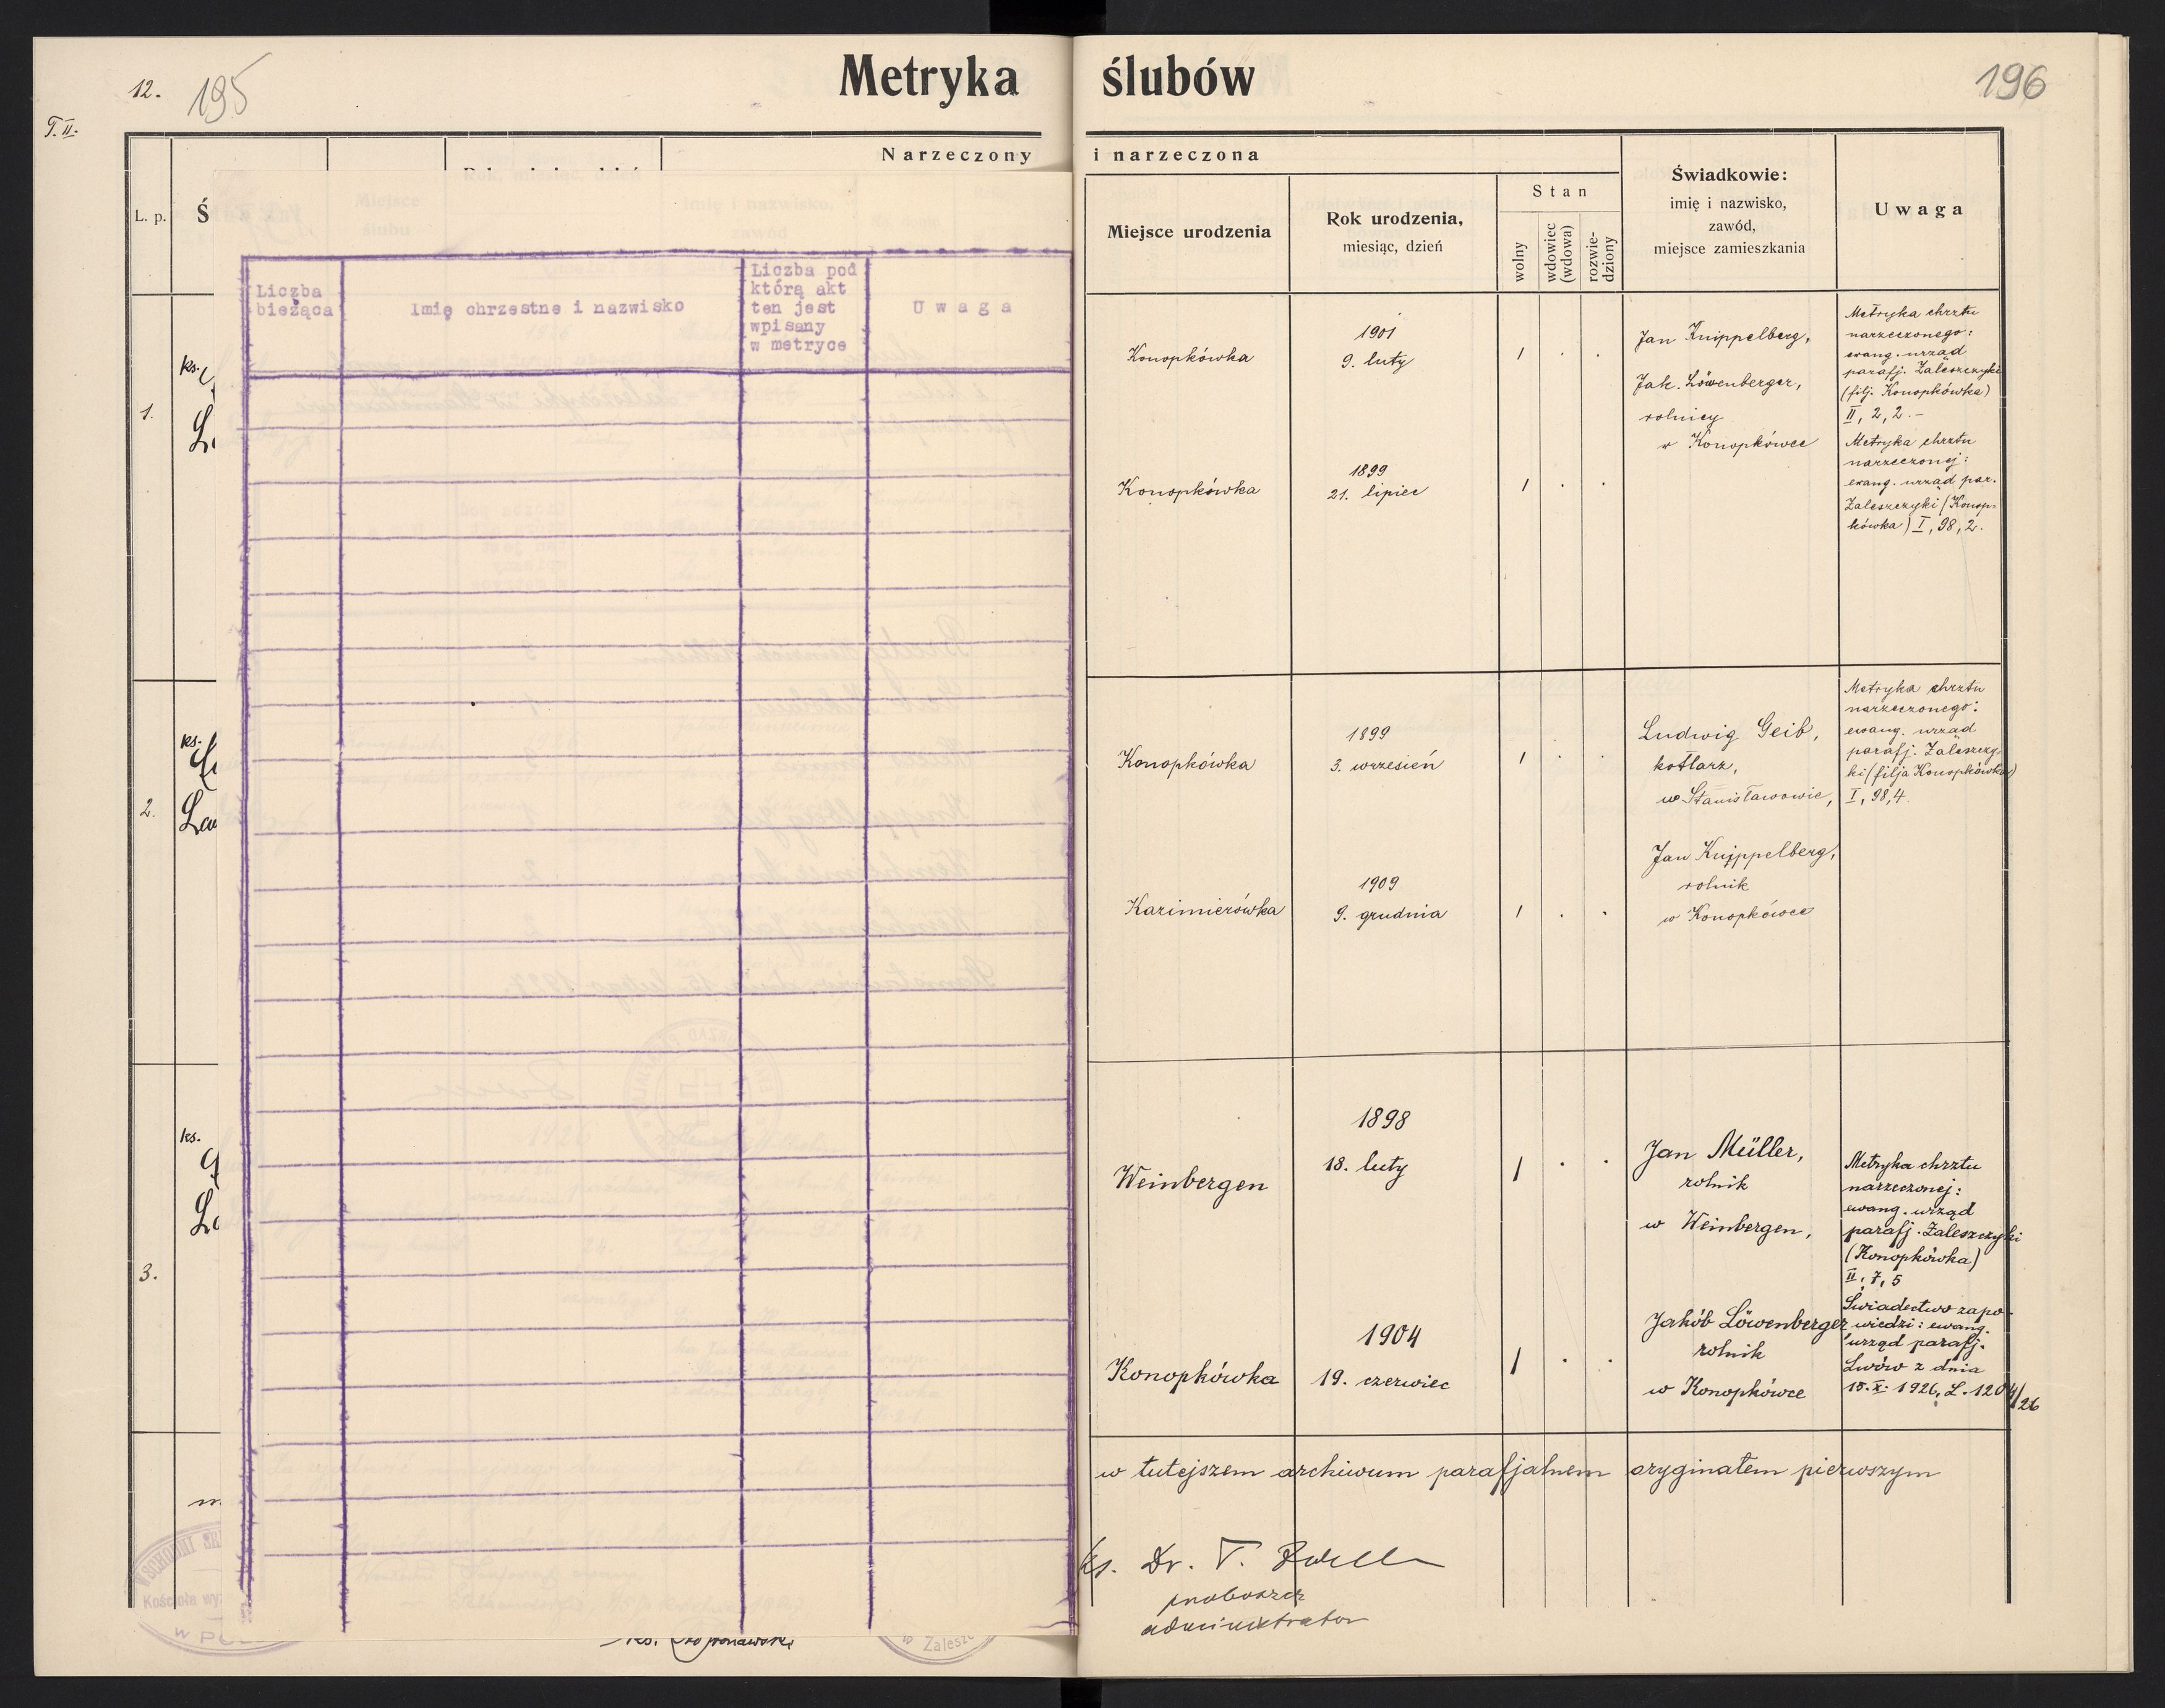 12.
195
T. II.
Metryka ślubów
196
Narzeczony i narzeczona
L. p.
Ś
Liczba
bieżąca
Imię chrzestne i nazwisko
Liczba pod
którą akt
ten jest
wpisany
w metryce
U w a g a
Miejsce urodzenia
Rok urodzenia,
miesiąc, dzień
Stan
wolny
wdowiec
(wdowa)
rozwie-
dziony
Świadkowie:
imię i nazwisko,
zawód,
miejsce zamieszkania
Uwaga
ks.
1.
Konopkówka
1901
9. luty
1 . .
Jan Knippelberg,
Jak. Löwenberger,
rolnicy
w Konopkówce
Metryka chrztu
narzeczonego:
ewang. urząd
parafj. Zaleszczyki
(filj. Konopkówka)
II, 2, 2. –
Konopkówka
1899
21. lipiec
1 . .
Metryka chrztu
narzeczonej:
ewang. urząd par.
Zaleszczyki (Konop-
kówka) I, 98, 2.
ks.
2.
Konopkówka
1899
3. wrzesień
1 . .
Ludwig Geib,
kotlarz,
w Stanisławowie,
Metryka chrztu
narzeczonego:
ewang. urząd
parafj. Zaleszczy-
ki (filja Konopkówka)
I, 98, 4.
Kazimierówka
1909
9. grudnia
1 . .
Jan Knippelberg,
rolnik
w Konopkówce
ks.
3.
Weinbergen
1898
18. luty
1 . .
Jan Müller,
rolnik
w Weinbergen,
Metryka chrztu
narzeczonej:
ewang. urząd
parafj. Zaleszczyki
(Konopkówka)
II, 7, 5
Konopkówka
1904
19. czerwiec
1 . .
Jakób Löwenberger
rolnik
w Konopkówce
Świadectwo zapo-
wiedzi: ewang.
urząd parafj.
Lwów z dnia
15. X. 1926, L. 1204/26
w tutejszem archiwum parafjalnem oryginałem pierwszym
ks. Dr. T.
proboszcz
administrator
Kościoła
ks.
Zalesz